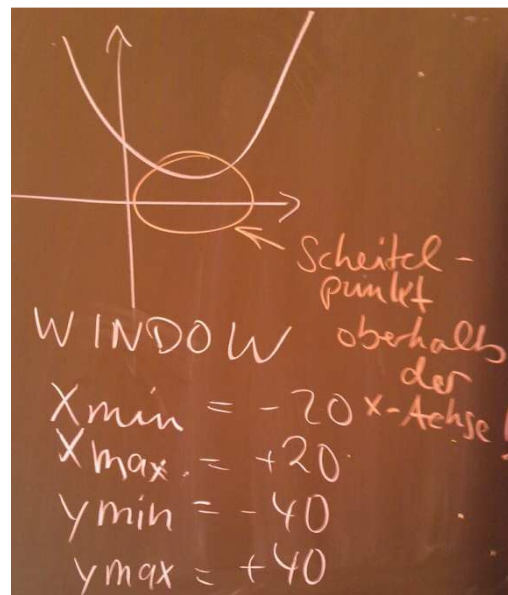 Scheitel-
punkt
oberhalb
der
x-Achse!
WINDOW
Xmin = -20
Xmax = +20
ymin = -40
ymax = +40